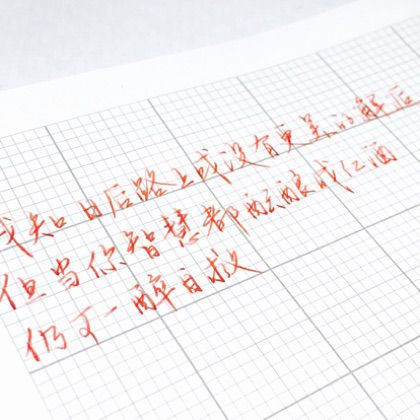 我知日后路上或没有更美的邂逅
但当你智慧都酝酿成红酒
仍可一醉自救